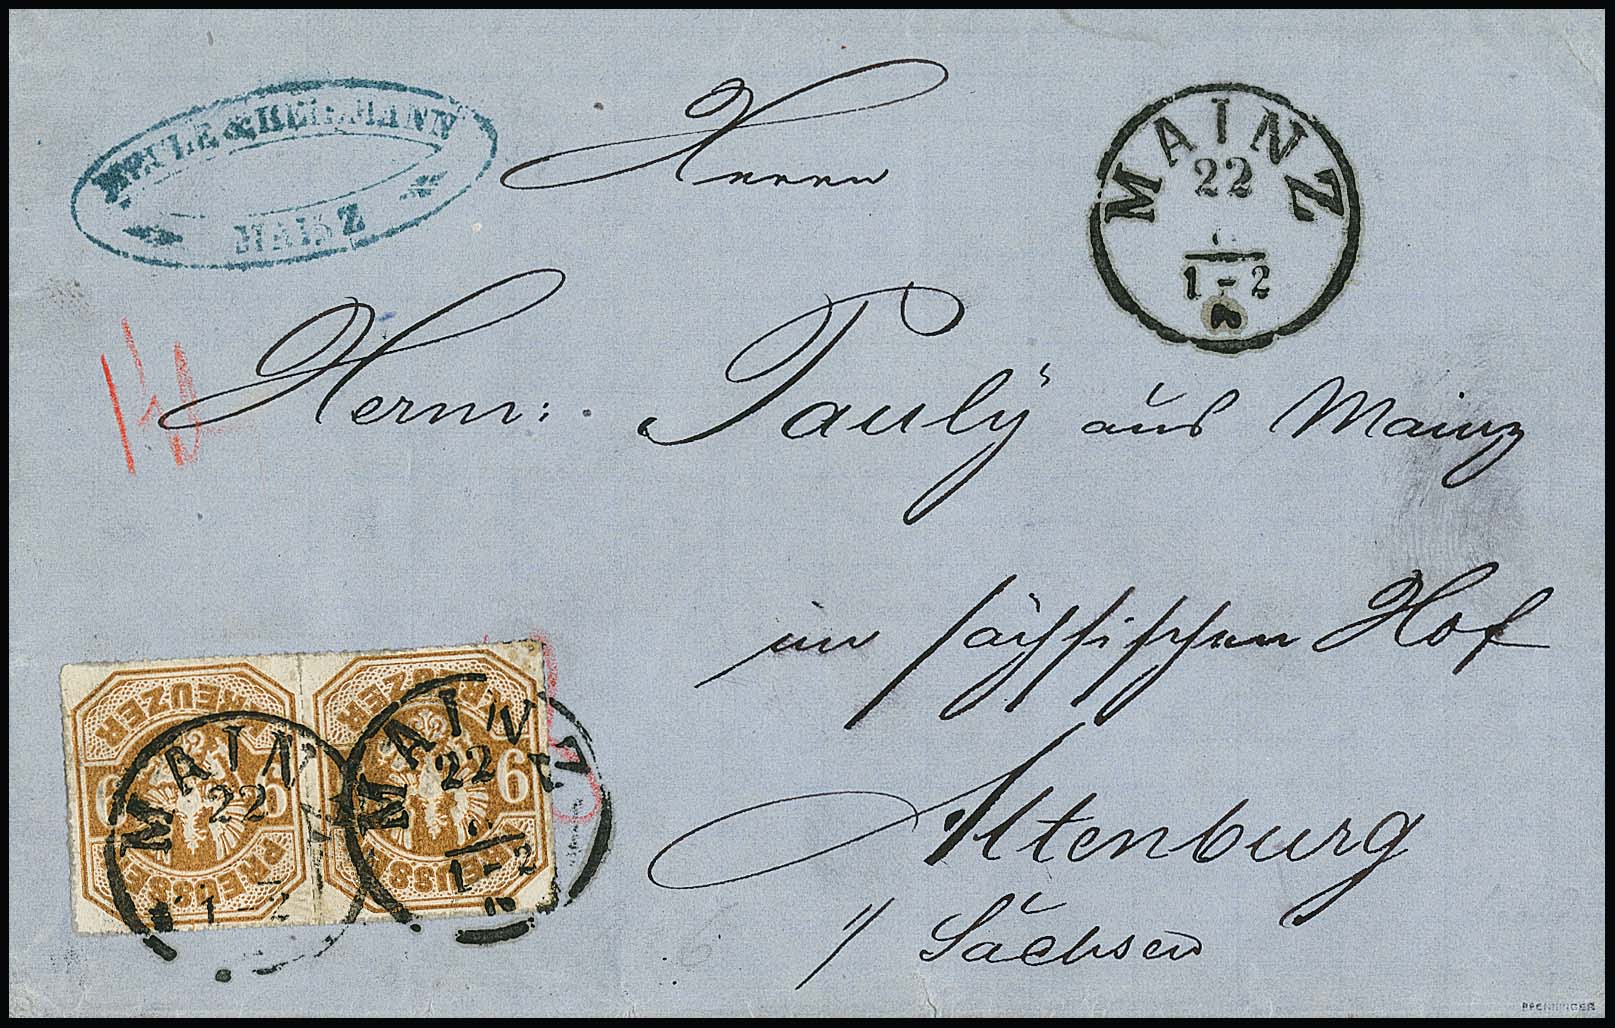 & HERRMANN
MAINZ
Herrn
MAINZ
22
1-2
Herm: Pauly aus Mainz
im sächsischen Hof
Altenburg
i/ Sachsen
KREUZER
6 6
PREUSSEN
MAINZ
22
1-2
KREUZER
6
PREUSSEN
MAINZ
22
1-2
6
PFENNINGER